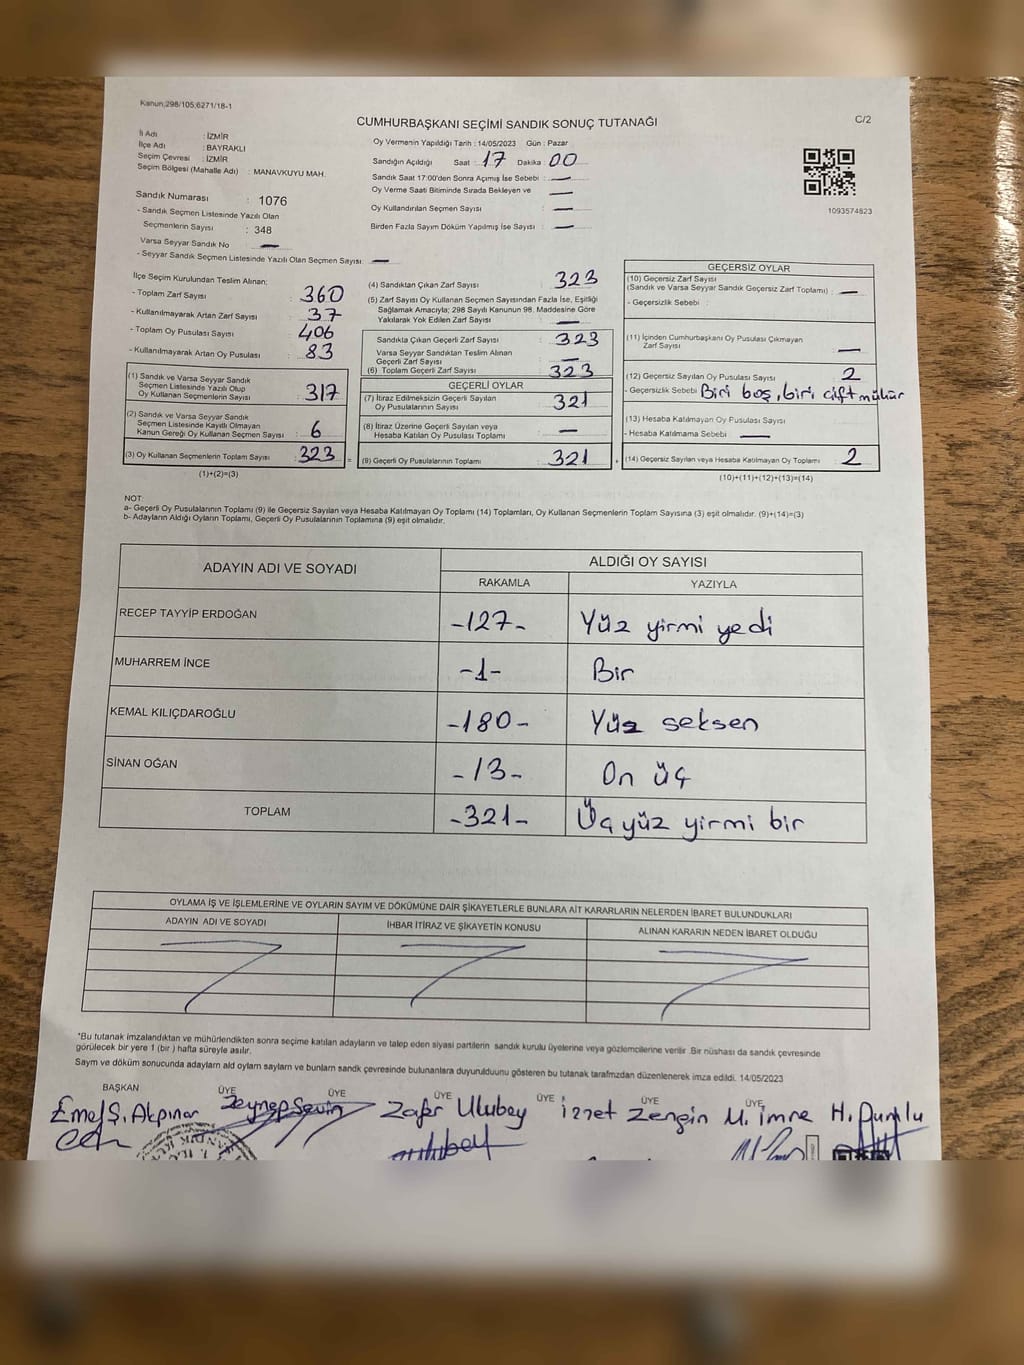 Kanun;298/105;6271/18-1
CUMHURBAŞKANI SEÇİMİ SANDIK SONUÇ TUTANAĞI
C/2
İl Adı : İZMİR
İlçe Adı : BAYRAKLI
Seçim Çevresi : İZMİR
Seçim Bölgesi (Mahalle Adı) : MANAVKUYU MAH.
Sandık Numarası : 1076
- Sandık Seçmen Listesinde Yazılı Olan
Seçmenlerin Sayısı : 348
Varsa Seyyar Sandık No —
- Seyyar Sandık Seçmen Listesinde Yazılı Olan Seçmen Sayısı: —
Oy Vermenin Yapıldığı Tarih : 14/05/2023 Gün : Pazar
Sandığın Açıldığı Saat : 17 Dakika : 00
Sandık Saat 17:00'den Sonra Açımış İse Sebebi : —
Oy Verme Saati Bitiminde Sırada Bekleyen ve —
Oy Kullandırılan Seçmen Sayısı : —
Birden Fazla Sayım Döküm Yapılmış İse Sayısı : —
1093574823
İlçe Seçim Kurulundan Teslim Alınan;
- Toplam Zarf Sayısı : 360
- Kullanılmayarak Artan Zarf Sayısı : 37
- Toplam Oy Pusulası Sayısı : 406
- Kullanılmayarak Artan Oy Pusulası : 83
(1) Sandık ve Varsa Seyyar Sandık
Seçmen Listesinde Yazılı Olup
Oy Kullanan Seçmenlerin Sayısı : 317
(2) Sandık ve Varsa Seyyar Sandık
Seçmen Listesinde Kayıtlı Olmayan
Kanun Gereği Oy Kullanan Seçmen Sayısı : 6
(3) Oy Kullanan Seçmenlerin Toplam Sayısı : 323
(1)+(2)=(3)
(4) Sandıktan Çıkan Zarf Sayısı : 323
(5) Zarf Sayısı Oy Kullanan Seçmen Sayısından Fazla İse, Eşitliği
Sağlamak Amacıyla; 298 Sayılı Kanunun 98. Maddesine Göre
Yakılarak Yok Edilen Zarf Sayısı : —
Sandıkta Çıkan Geçerli Zarf Sayısı : 323
Varsa Seyyar Sandıktan Teslim Alınan
Geçerli Zarf Sayısı : —
(6) Toplam Geçerli Zarf Sayısı : 323
GEÇERLİ OYLAR
(7) İtiraz Edilmeksizin Geçerli Sayılan
Oy Pusulalarının Sayısı : 321
(8) İtiraz Üzerine Geçerli Sayılan veya
Hesaba Katılan Oy Pusulası Toplamı : —
= (9) Geçerli Oy Pusulalarının Toplamı : 321
GEÇERSİZ OYLAR
(10) Geçersiz Zarf Sayısı
(Sandık ve Varsa Seyyar Sandık Geçersiz Zarf Toplamı) : —
- Geçersizlik Sebebi :
(11) İçinden Cumhurbaşkanı Oy Pusulası Çıkmayan
Zarf Sayısı : —
(12) Geçersiz Sayılan Oy Pusulası Sayısı : 2
- Geçersizlik Sebebi : Biri boş, biri çift mühür
(13) Hesaba Katılmayan Oy Pusulası Sayısı :
- Hesaba Katılmama Sebebi : —
+ (14) Geçersiz Sayılan veya Hesaba Katılmayan Oy Toplamı : 2
(10)+(11)+(12)+(13)=(14)
NOT:
a- Geçerli Oy Pusulalarının Toplamı (9) ile Geçersiz Sayılan veya Hesaba Katılmayan Oy Toplamı (14) Toplamları, Oy Kullanan Seçmenlerin Toplam Sayısına (3) eşit olmalıdır. (9)+(14)=(3)
b- Adayların Aldığı Oyların Toplamı, Geçerli Oy Pusulalarının Toplamına (9) eşit olmalıdır.
ADAYIN ADI VE SOYADI ALDIĞI OY SAYISI
RAKAMLA YAZIYLA
RECEP TAYYİP ERDOĞAN -127- Yüz yirmi yedi
MUHARREM İNCE -1- Bir
KEMAL KILIÇDAROĞLU -180- Yüz seksen
SİNAN OĞAN -13- On üç
TOPLAM -321- Üçyüz yirmi bir
OYLAMA İŞ VE İŞLEMLERİNE VE OYLARIN SAYIM VE DÖKÜMÜNE DAİR ŞİKAYETLERLE BUNLARA AİT KARARLARIN NELERDEN İBARET BULUNDUKLARI
ADAYIN ADI VE SOYADI İHBAR İTİRAZ VE ŞİKAYETİN KONUSU ALINAN KARARIN NEDEN İBARET OLDUĞU
*Bu tutanak imzalandıktan ve mühürlendikten sonra seçime katılan adayların ve talep eden siyasi partilerin sandık kurulu üyelerine veya gözlemcilerine verilir .Bir nüshası da sandık çevresinde
görülecek bir yere 1 (bir ) hafta süreyle asılır.
Sayım ve döküm sonucunda adayların ald oyların sayların ve bunların sandk çevresinde bulunanlara duyurulduunu gösteren bu tutanak tarafmzdan düzenlenerek imza edildi. 14/05/2023
BAŞKAN ÜYE ÜYE ÜYE ÜYE ÜYE ÜYE
Emel Ş. Akpınar Zeynep Sevin Zafer Ulubey İzzet Zengin M. İmre H.